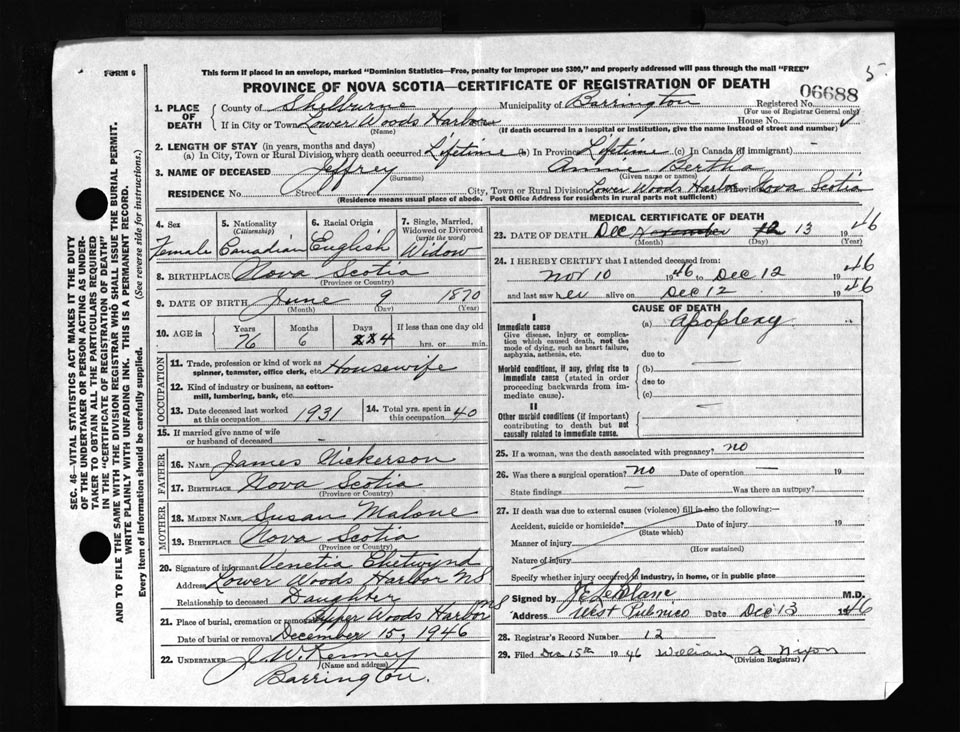 FORM 6
This form if placed in an envelope, marked "Dominion Statistics—Free, penalty for improper use $300," and properly addressed will pass through the mail "FREE"
5.
PROVINCE OF NOVA SCOTIA—CERTIFICATE OF REGISTRATION OF DEATH
06688
1. PLACE OF DEATH
County of Shelburne Municipality of Barrington Registered No.
(For use of Registrar General only)
If in City or Town Lower Woods Harbor House No.
(Name) (If death occurred in a hospital or institution, give the name instead of street and number)
2. LENGTH OF STAY (in years, months and days)
(a) In City, Town or Rural Division where death occurred Lifetime (b) In Province Lifetime (c) In Canada (if immigrant) —
3. NAME OF DECEASED Jeffrey Annie Bertha
(Surname) (Given name or names)
RESIDENCE No. Street City, Town or Rural Division Lower Woods Harbor Province Nova Scotia
(Residence means usual place of abode. Post Office Address for residents in rural parts not sufficient)
4. Sex Female
5. Nationality (Citizenship) Canadian
6. Racial Origin English
7. Single, Married, Widowed or Divorced (write the word) Widow
8. BIRTHPLACE Nova Scotia
(Province or Country)
9. DATE OF BIRTH June 9 1870
(Month) (Day) (Year)
10. AGE in Years Months Days If less than one day old
76 6 4 hrs. or min.
OCCUPATION
11. Trade, profession or kind of work as spinner, teamster, office clerk, etc. Housewife
12. Kind of industry or business, as cotton-mill, lumbering, bank, etc.
13. Date deceased last worked at this occupation 1931
14. Total yrs. spent in this occupation 40
15. If married give name of wife or husband of deceased —
FATHER
16. NAME James Nickerson
17. BIRTHPLACE Nova Scotia
(Province or Country)
MOTHER
18. MAIDEN NAME Susan Malone
19. BIRTHPLACE Nova Scotia
(Province or Country)
20. Signature of informant Venetia Chetwynd
Address Lower Woods Harbor NS
Relationship to deceased Daughter
21. Place of burial, cremation or removal Upper Woods Harbor NS
Date of burial or removal December 15, 1946
22. UNDERTAKER J. W. Kenney
(Name and address)
Barrington.
MEDICAL CERTIFICATE OF DEATH
23. DATE OF DEATH Dec November 12 13 1946
(Month) (Day) (Year)
24. I HEREBY CERTIFY that I attended deceased from:
Nov 10 1946 to Dec 12 1946
and last saw her alive on Dec 12 1946
CAUSE OF DEATH
I
Immediate cause (a) Apoplexy
Give disease, injury or complication which caused death, not the mode of dying, such as heart failure, asphyxia, asthenia, etc.
due to
Morbid conditions, if any, giving rise to immediate cause (stated in order proceeding backwards from immediate cause).
(b)
due to
(c)
II
Other morbid conditions (if important) contributing to death but not causally related to immediate cause.
25. If a woman, was the death associated with pregnancy? no
26. Was there a surgical operation? no Date of operation — 19
State findings — Was there an autopsy?
27. If death was due to external causes (violence) fill in also the following:—
Accident, suicide or homicide? Date of injury 19
(State which)
Manner of injury
(How sustained)
Nature of injury
Specify whether injury occurred in industry, in home, or in public place
Signed by J E LeBlanc M.D.
Address West Pubnico Date Dec 13 1946
28. Registrar's Record Number 12
29. Filed Dec 15th 1946 William A Nixon
(Division Registrar)
SEC. 46—VITAL STATISTICS ACT MAKES IT THE DUTY
OF THE UNDERTAKER OR PERSON ACTING AS UNDER-
TAKER TO OBTAIN ALL THE PARTICULARS REQUIRED
IN THE "CERTIFICATE OF REGISTRATION OF DEATH"
AND TO FILE THE SAME WITH THE DIVISION REGISTRAR WHO SHALL ISSUE THE BURIAL PERMIT.
WRITE PLAINLY WITH UNFADING INK. THIS IS A PERMANENT RECORD.
Every item of information should be carefully supplied. (See reverse side for instructions.)